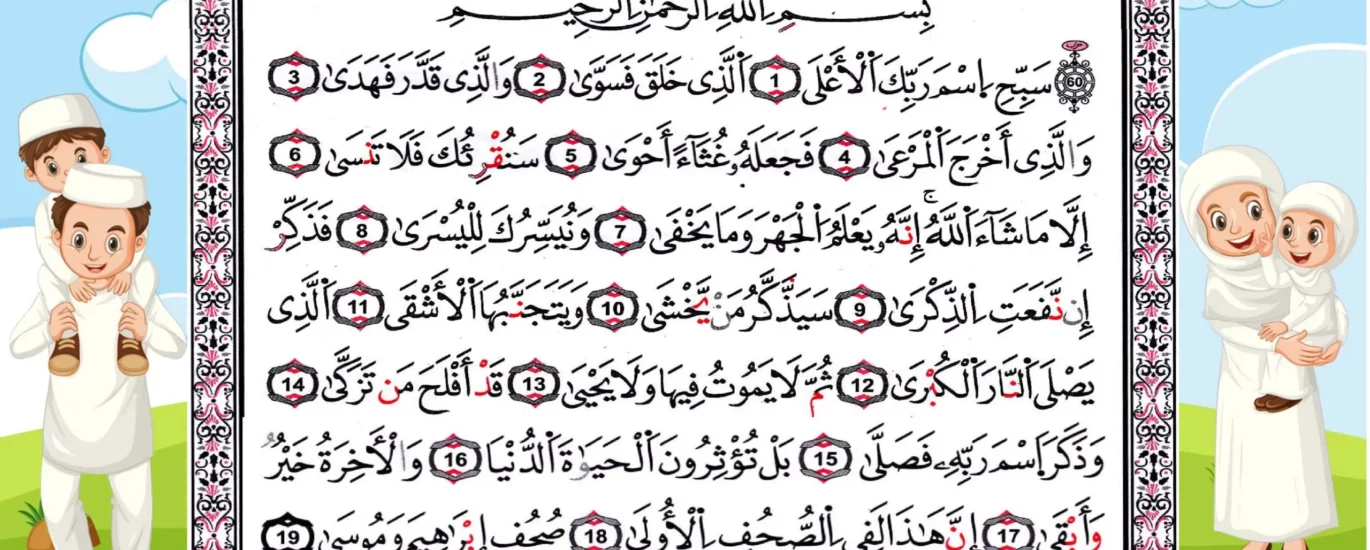 بِسْمِ اِ۬للَّهِ اِ۬لرَّحْمَٰنِ اِ۬لرَّحِيمِ
60 سَبِّحِ اِ۪سْمَ رَبِّكَ اَ۬لْأَعْلَى 1 اَ۬لَّذِى خَلَقَ فَسَوَّىٰ 2 وَالَّذِى قَدَّرَ فَهَدَىٰ 3
وَالَّذِى أَخْرَجَ اَ۬لْمَرْعَىٰ 4 فَجَعَلَهُۥ غُثَآءً أَحْوَىٰ 5 سَنُقْرِئُكَ فَلَا تَنسَىٰ 6
إِلَّا مَا شَآءَ اَ۬للَّهُۚ إِنَّهُۥ يَعْلَمُ اُ۬لْجَهْرَ وَمَا يَخْفَىٰ 7 وَنُيَسِّرُكَ لِلْيُسْرَىٰ 8 فَذَكِّرْ
إِن نَّفَعَتِ اِ۬لذِّكْرَىٰ 9 سَيَذَّكَّرُ مَنْ يَّخْشَىٰ 10 وَيَتَجَنَّبُهَا اَ۬لْأَشْقَى 11 اَ۬لَّذِى
يَصْلَى اَ۬لنَّارَ اَ۬لْكُبْرَىٰ 12 ثُمَّ لَا يَمُوتُ فِيهَا وَلَا يَحْيَىٰ 13 قَدْ أَفْلَحَ مَن تَزَكَّىٰ 14
وَذَكَرَ اَ۪سْمَ رَبِّهِۦ فَصَلَّىٰ 15 بَلْ تُؤْثِرُونَ اَ۬لْحَيَوٰةَ اَ۬لدُّنْيَا 16 وَالْأَخِرَةُ خَيْرٌ
وَأَبْقَىٰ 17 إِنَّ هَٰذَا لَفِى اِ۬لصُّحُفِ اِ۬لْأُولَىٰ 18 صُحُفِ إِبْرَٰهِيمَ وَمُوسَىٰ 19